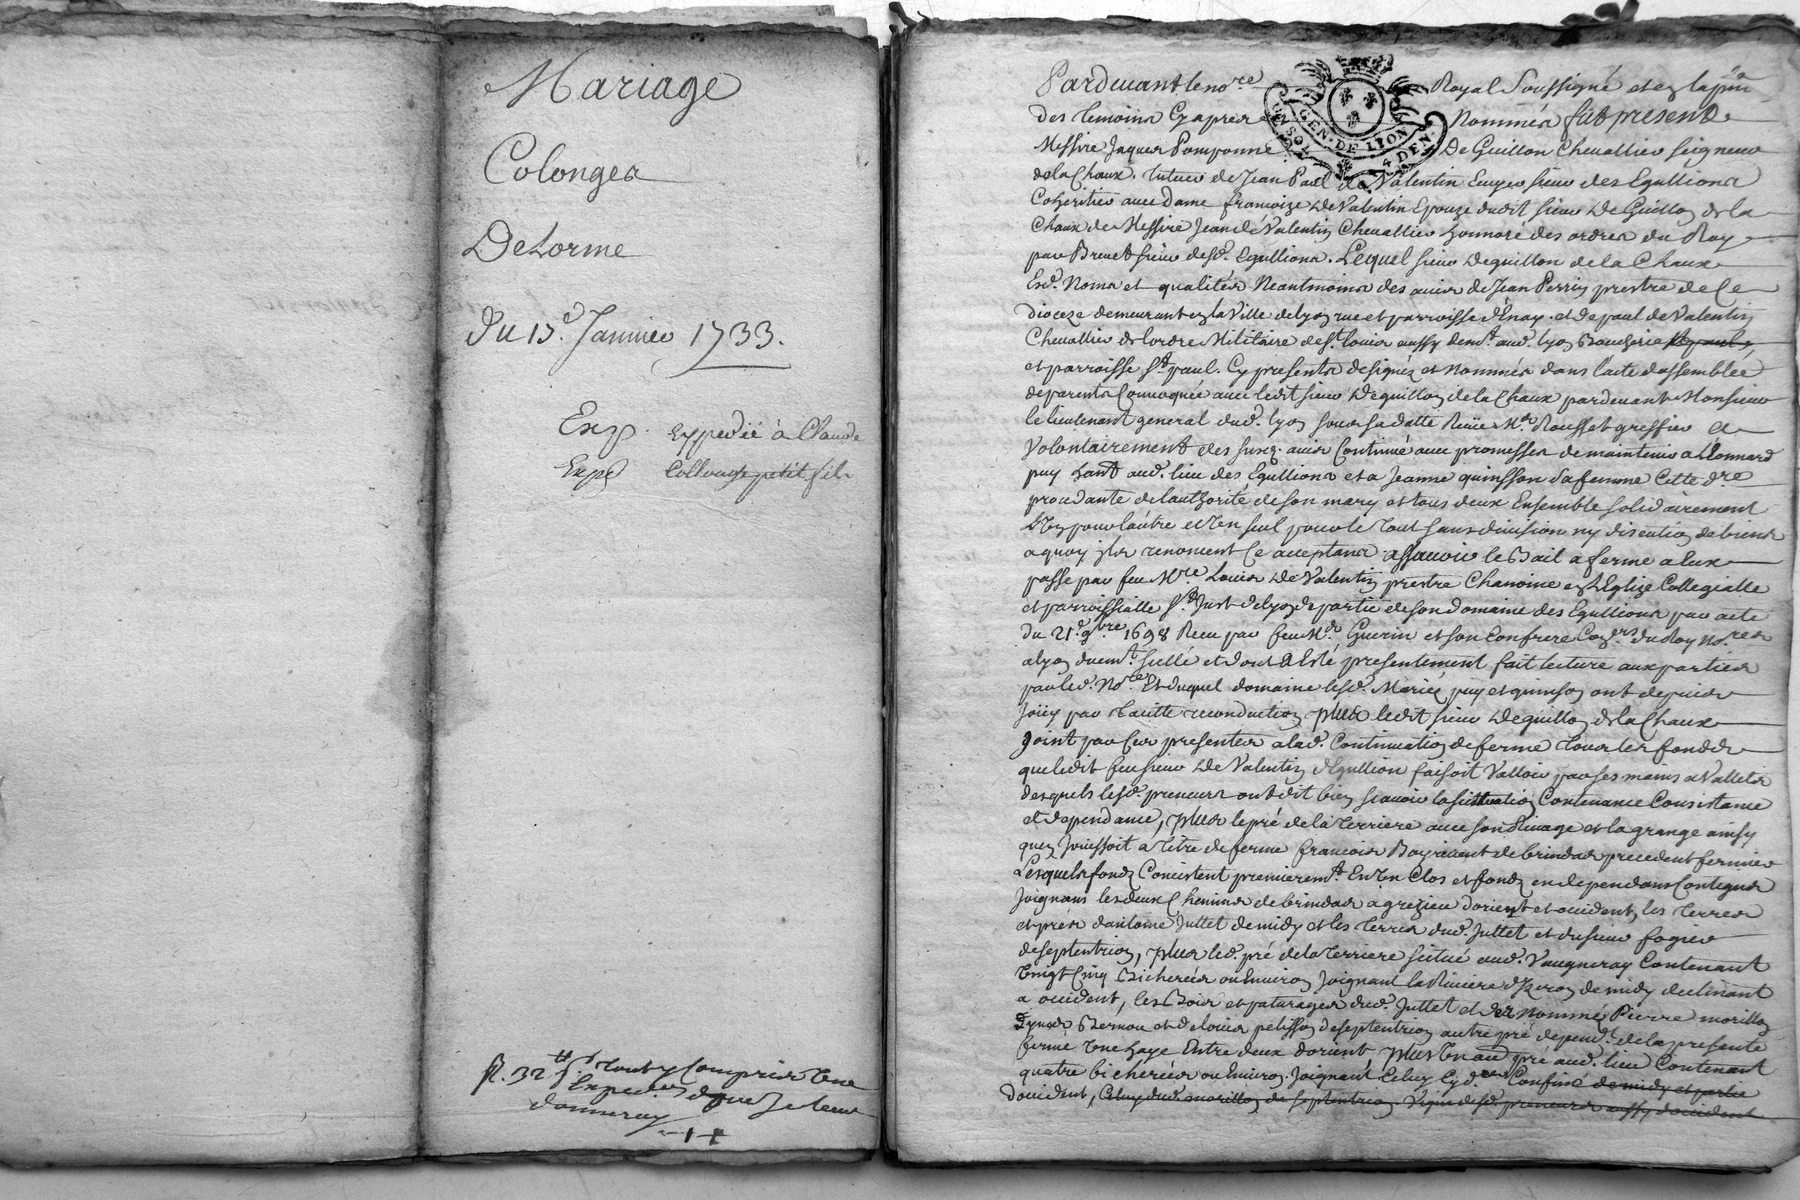 Mariage
Colonges
DeLorme
Du 15e. Janvier 1733.
Exp. Expedié à Claude
Expé Collonge petit fils
R. 32 tt f. tout y Compris Une
Exped.on que Je leur
donneray
Pardevant le no.re Royal Soussigné et en la p.nce
des temoins Cy apres Nommés fut present
GEN. DE LION
UN SOL 4 DEN.
Messire Jaques Pomponne De Guillon Chevallier seigneur
de la Chaux. tuteur de Jean Paul de Valentin Ecuyer sieur des Egullions
Coheritier avec Dame francoize De Valentin Epouze dudit sieur De Guillon de la
Chaux de Messire Jean de Valentin Chevallier honnoré des ordres du Roy
par Brevet sieur desd. Egullions. Lequel sieur Deguillon de la Chaux
Esd. Noms et qualités Neantmoins des avis de Jean Perrin prestre de Ce
dioceze demeurant en la Ville de Lyon rue et parroisse d'Enay. et de paul de Valentin
Chevallier de lordre Militaire de St. louis aussy demt. aud. Lyon Boucherie St paul
et parroisse St. paul. Cy presents designéz et nommés dans lacte dassemblée
de parents Convoquée avec ledit sieur Deguillon de la Chaux pardevant Monsieur
le lieutenant general dud. Lyon sous sa datte Reçüe Me. Rousset greffier a
Volontairement et des susd. avis Continué avec promesses de maintenir a Leonnard
puy habt. aud. lieu des Egullions et a Jeanne quinsson sa femme Cette d.re
procedante de lauthorité de son mary et tous deux Ensemble solidairement
l'Un pour lautre et l'Un seul pour le tout sans division ny discution de biens
a quoy ils renoncent Ce acceptans assavoir le Bail a ferme a Eux
passé par feu Mre. Louis De Valentin prestre Chanoine en L'Eglize Collegialle
et parroissialle St. Just de Lyon de partie de son domaine des Egullions par acte
du 21e. 9bre 1698 Recu par feu Me. Guerin et son Confrere Con.ers du Roy No.res
a Lyon duemt. scellé et dont a Esté presentement fait lecture aux parties
par led. No.re Et duquel domaine lesd. Mariez puy et quinson ont depuis
Joüy par tacitte reconduction, plus ledit sieur Deguillon de la Chaux
Joint par Ces presentes a lad. Continuation de ferme tous les fonds
que ledit feu sieur De Valentin d'Egullion faisoit Valloir par ses mains a Vallets
desquels lesd. preneurs ont dit bien scavoir la scittuation Contenance Consistance
et dependance, plus le pré de la terriere avec son Suivage et la grange ainsy
quen Jouissoit a titre de ferme francois Bayament de brindas precedent fermier
Lesquels fondz Concistent premieremt. En Un Clos et fondz en dependans Contigus
Joignans les deux Chemins de brindas a grezieu dorient et occident, les terres
et prés dantoine Juttet de midy et les terres dud. Juttet et du sieur fogier
de septentrion, plus led. pré de la terriere scitué aud. Vaugneray Contenant
Vingt Cinq Bicherées ou Environ Joignant la Riviere d'Yzeron de midy declinant
a occident, les Bois et paturages dud. Juttet et des nommé Pierre morillon
Bernou et de louis pelisson de septentrion autre pré depend.t de la presente
ferme Une haye Entre deux dorient, plus Un autre pré aud. lieu Contenant
quatre bicherées ou Environ Joignant Celuy Cyd.us Confiné de midy et partie
doccident, Celuy dud. morillon de septentrion Vigne desd. preneurs aussy doccident